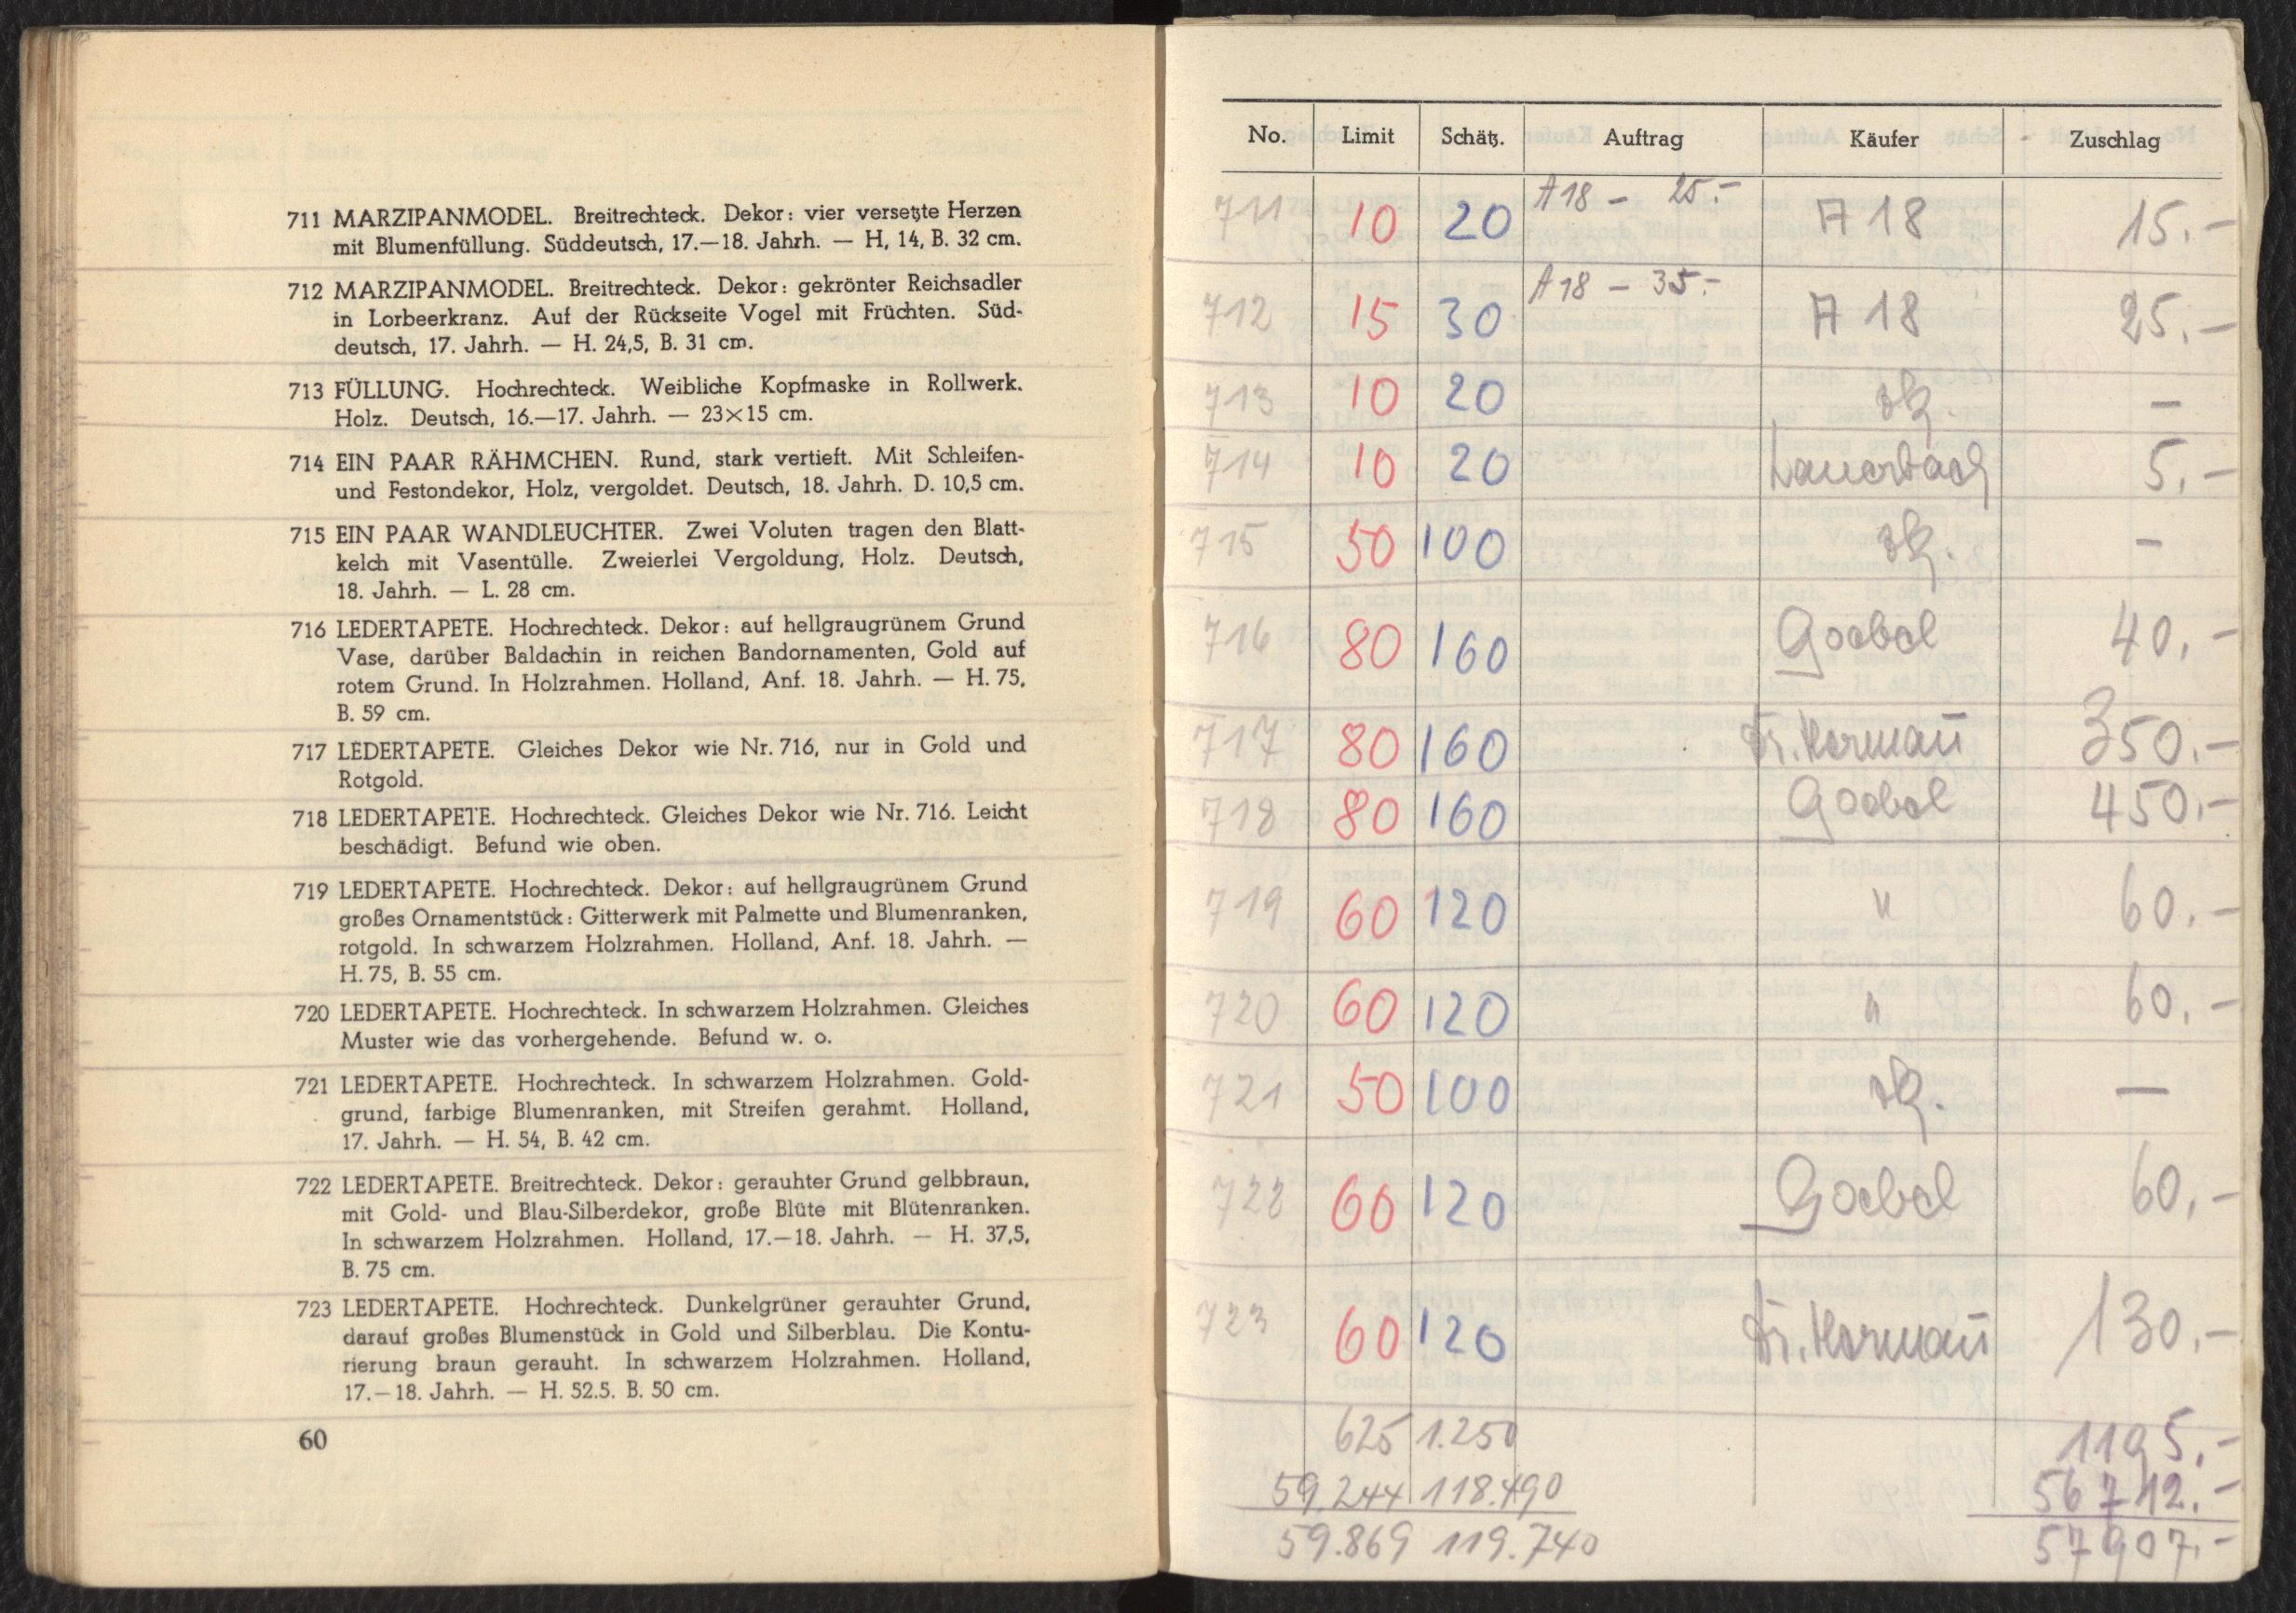 711 MARZIPANMODEL. Breitrechteck. Dekor: vier versetzte Herzen
mit Blumenfüllung. Süddeutsch, 17.—18. Jahrh. — H, 14, B. 32 cm.
712 MARZIPANMODEL. Breitrechteck. Dekor: gekrönter Reichsadler
in Lorbeerkranz. Auf der Rückseite Vogel mit Früchten. Süd-
deutsch, 17. Jahrh. — H. 24,5, B. 31 cm.
713 FÜLLUNG. Hochrechteck. Weibliche Kopfmaske in Rollwerk.
Holz. Deutsch, 16.—17. Jahrh. — 23×15 cm.
714 EIN PAAR RÄHMCHEN. Rund, stark vertieft. Mit Schleifen-
und Festondekor, Holz, vergoldet. Deutsch, 18. Jahrh. D. 10,5 cm.
715 EIN PAAR WANDLEUCHTER. Zwei Voluten tragen den Blatt-
kelch mit Vasentülle. Zweierlei Vergoldung, Holz. Deutsch,
18. Jahrh. — L. 28 cm.
716 LEDERTAPETE. Hochrechteck. Dekor: auf hellgraugrünem Grund
Vase, darüber Baldachin in reichen Bandornamenten, Gold auf
rotem Grund. In Holzrahmen. Holland, Anf. 18. Jahrh. — H. 75,
B. 59 cm.
717 LEDERTAPETE. Gleiches Dekor wie Nr. 716, nur in Gold und
Rotgold.
718 LEDERTAPETE. Hochrechteck. Gleiches Dekor wie Nr. 716. Leicht
beschädigt. Befund wie oben.
719 LEDERTAPETE. Hochrechteck. Dekor: auf hellgraugrünem Grund
großes Ornamentstück: Gitterwerk mit Palmette und Blumenranken,
rotgold. In schwarzem Holzrahmen. Holland, Anf. 18. Jahrh. —
H. 75, B. 55 cm.
720 LEDERTAPETE. Hochrechteck. In schwarzem Holzrahmen. Gleiches
Muster wie das vorhergehende. Befund w. o.
721 LEDERTAPETE. Hochrechteck. In schwarzem Holzrahmen. Gold-
grund, farbige Blumenranken, mit Streifen gerahmt. Holland,
17. Jahrh. — H. 54, B. 42 cm.
722 LEDERTAPETE. Breitrechteck. Dekor: gerauhter Grund gelbbraun,
mit Gold- und Blau-Silberdekor, große Blüte mit Blütenranken.
In schwarzem Holzrahmen. Holland, 17.—18. Jahrh. — H. 37,5,
B. 75 cm.
723 LEDERTAPETE. Hochrechteck. Dunkelgrüner gerauhter Grund,
darauf großes Blumenstück in Gold und Silberblau. Die Kontu-
rierung braun gerauht. In schwarzem Holzrahmen. Holland,
17.—18. Jahrh. — H. 52.5. B. 50 cm.
60
No. Limit Schätz. Auftrag Käufer Zuschlag
711 10 20 A 18 – 25.– A 18 15.–
712 15 30 A 18 – 35.– A 18 25.–
713 10 20 –
714 10 20 5.–
715 50 100 –
716 80 160 Goebel 40.–
717 80 160 Dr. Hermañ 350.–
718 80 160 Goebel 450.–
719 60 120 " 60.–
720 60 120 " 60.–
721 50 100 —
722 60 120 Goebel 60.–
723 60 120 Dr. Hermañ 130.–
625 1.250 1195.–
59.244 118.490 56712.–
59.869 119.740 57907.–